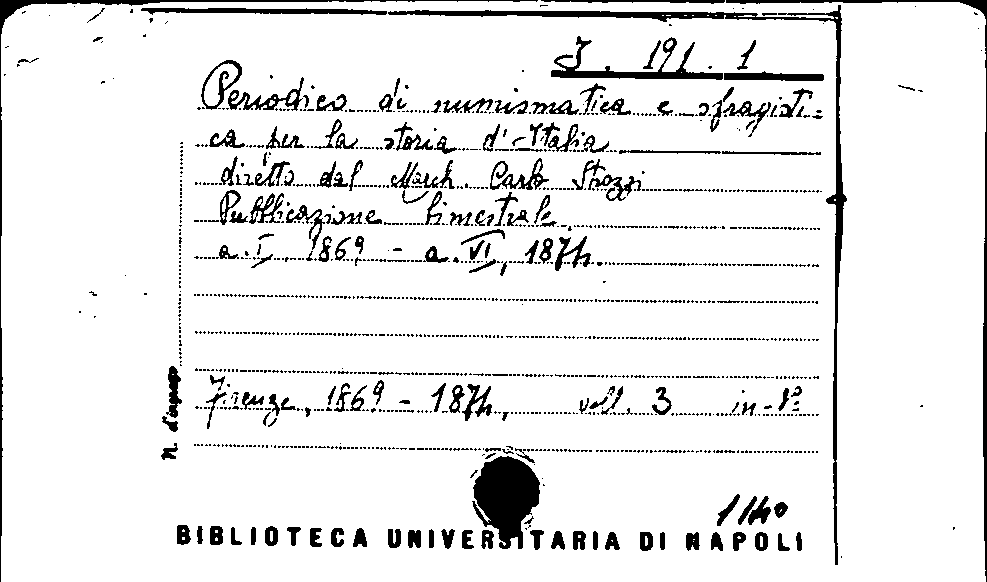 J. 191. 1
Periodico di numismatica e sfragisti=
ca per la storia d'Italia
diretto dal March. Carlo Strozzi
Pubblicazione bimestrale
a. I, 1869 - a. VI, 1874.
Firenze, 1869 - 1874, voll. 3 in-8º
N. d'ingresso
1140
BIBLIOTECA UNIVERSITARIA DI NAPOLI